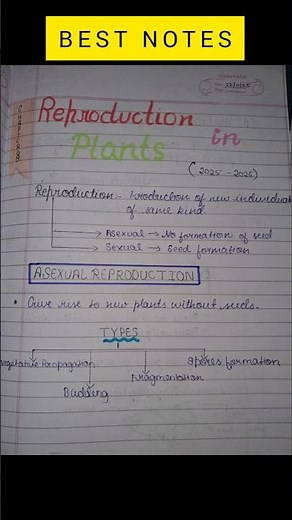 BEST NOTES
Reproduction
in
Plants
(2025-2026)
Reproduction - Production of new individuals
of same kind
→ Asexual → No formation of seed
→ Sexual → Seed formation
ASEXUAL REPRODUCTION
• Give rise to new plants without seeds.
TYPES
Vegetative Propagation
Spores formation
Fragmentation
Budding